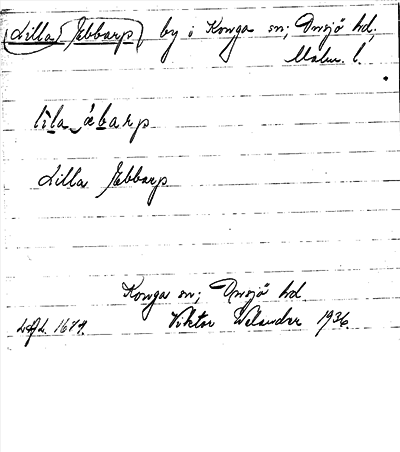 Lilla Ebbarp, by i Konga sn; Onsjö hd,
Malm. l.
lila ,äbarp
Lilla Ebbarp
Konga sn; Onsjö hd
Viktor Welander 1936.